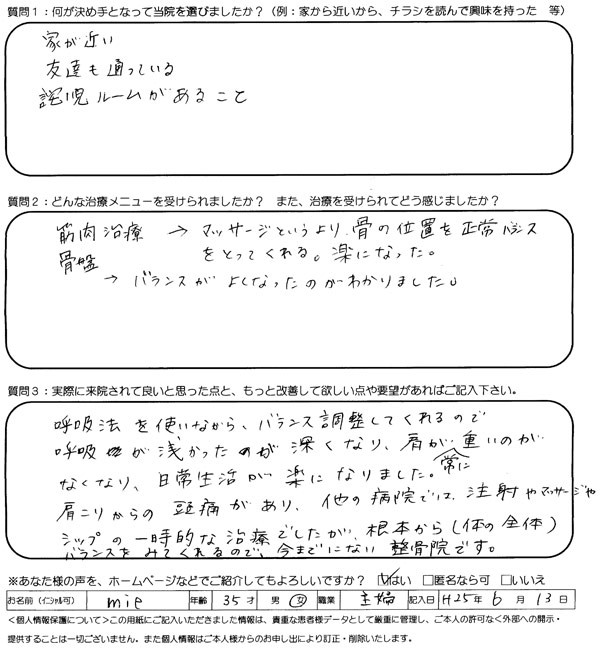 質問1：何が決め手となって当院を選びましたか？（例：家から近いから、チラシを読んで興味を持った　等）
家が近い
友達も通っている
託児ルームがあること
質問2：どんな治療メニューを受けられましたか？　また、治療を受けられてどう感じましたか？
筋肉治療　→　マッサージというより、骨の位置を正常バランス
をとってくれる。楽になった。
骨盤
→　バランスがよくなったのがわかりました。
質問3：実際に来院されて良いと思った点と、もっと改善して欲しい点や要望があればご記入下さい。
呼吸法を使いながら、バランス調整してくれるので
呼吸が浅かったのが深くなり、肩が重いのが
なくなり、日常生活が楽になりました。常に
肩こりからの頭痛があり、他の病院では、注射やマッサージや
シップの一時的な治療でしたが、根本から（体の全体）
バランスをみてくれるので、今までにない整骨院です。
※あなた様の声を、ホームページなどでご紹介してもよろしいですか？　☑はい　□匿名なら可　□いいえ
お名前（イニシャル可）　mie　年齢　35才　男　女　職業　主婦　記入日　H25年6月13日
＜個人情報保護について＞この用紙にご記入いただきました情報は、貴重な患者様データとして厳重に管理し、ご本人の許可なく外部への開示・
提供することは一切ございません。また個人情報はご本人様からのお申し出により訂正・削除いたします。